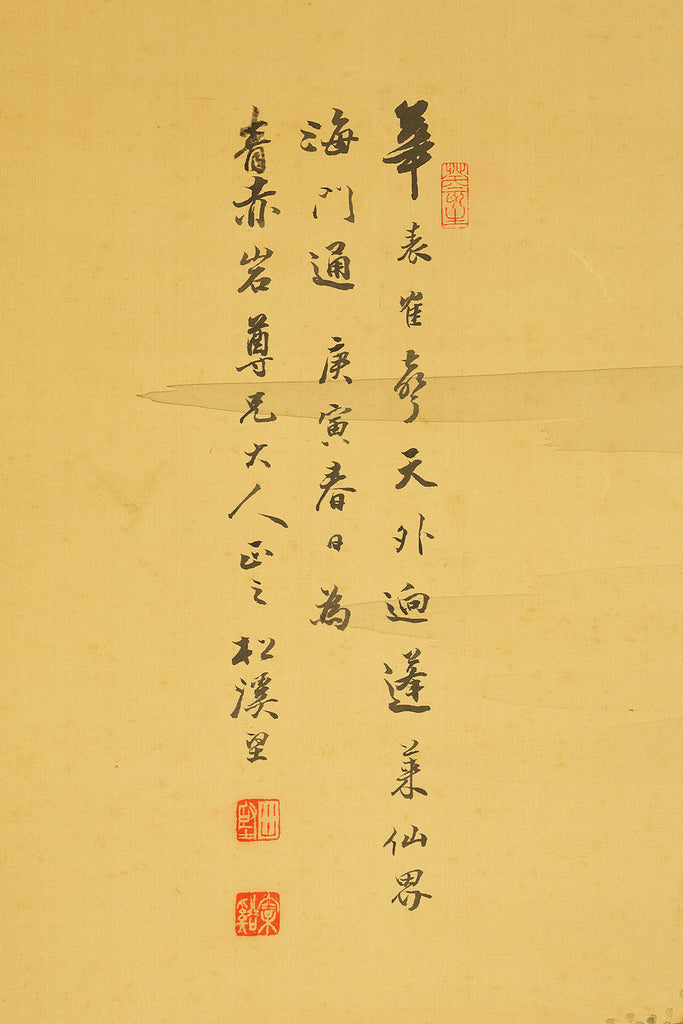 華表隺聲天外迥蓬萊仙界
海門通 庚寅春日為
青赤岩尊兄大人正之 松溪望